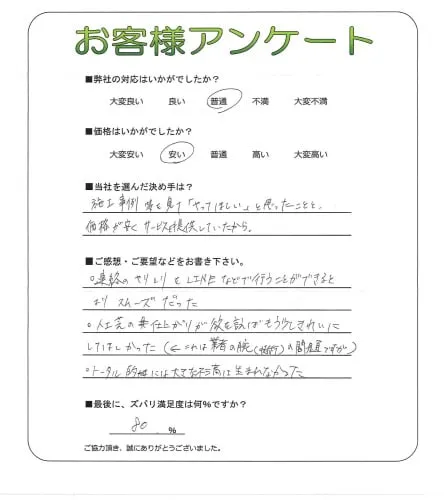 お客様アンケート
■弊社の対応はいかがでしたか?
大変良い 良い 普通 不満 大変不満
■価格はいかがでしたか?
大変安い 安い 普通 高い 大変高い
■当社を選んだ決め手は?
施工事例 を見て「やってほしい」と思ったことと、
価格が安くサービスを提供していたから。
■ご感想・ご要望などをお書き下さい。
○連絡のやりとりをLINEなどで行うことができると
よりスムーズだった
○人工芝の 仕上がりが欲を言えばもう少しきれいに
してほしかった(←これは業者の腕 の問題ですが)
○トータル的には大きな は生まれなかった
■最後に、ズバリ満足度は何%ですか?
80 %
ご協力頂き、誠にありがとうございました。